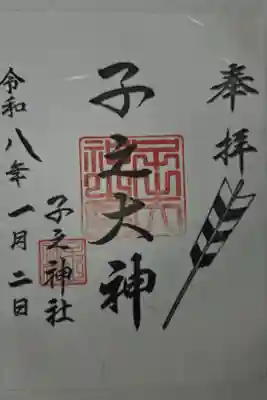 奉拝
子之大神
子之神社
令和八年一月二日